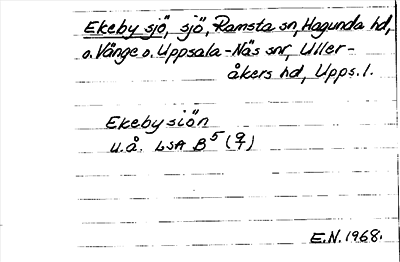 Ekeby sjö, sjö, Ramsta sn, Hagunda hd,
o. Vänge o. Uppsala-Näs snr, Uller-
åkers hd, Upps. l.
Ekeby siön
u.å. LSA B5 (9/1)
E.N. 1968.